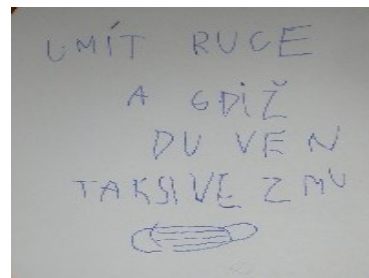 UMÍT RUCE
A GDIŽ
DU VEN
TAKSIVE ZMU